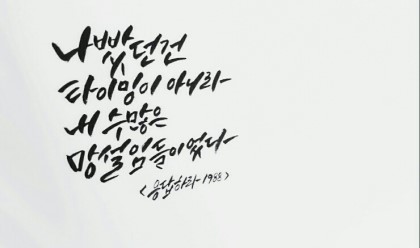 나빴던건
타이밍이 아니라
내 수많은
망설임들이었다
<응답하라 1988>